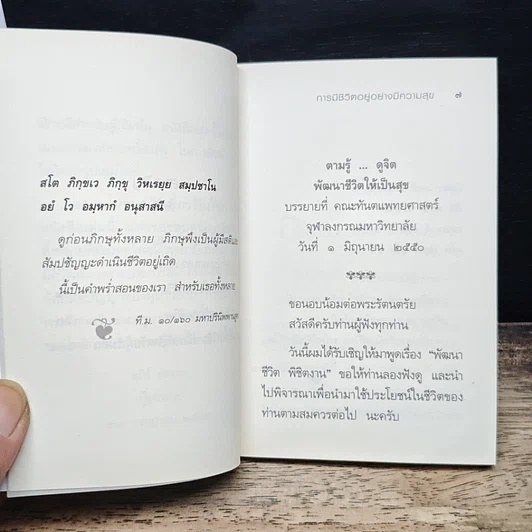 สโต ภิกฺขเว ภิกฺขุ วิหเรยฺย สมฺปชาโน
อยํ โว อมฺหากํ อนุสาสนี
ดูก่อนภิกษุทั้งหลาย ภิกษุพึงเป็นผู้มีสติและ
สัมปชัญญะดำเนินชีวิตอยู่เถิด
นี้เป็นคำพร่ำสอนของเรา สำหรับเธอทั้งหลาย
ที.ม. ๑๐/๑๖๐
การมีชีวิตอยู่อย่างมีความสุข ๗
ตามรู้ ... ดูจิต
พัฒนาชีวิตให้เป็นสุข
บรรยายที่ คณะทันตแพทยศาสตร์
จุฬาลงกรณมหาวิทยาลัย
วันที่ ๑ มิถุนายน ๒๕๕๐
ขอนอบน้อมต่อพระรัตนตรัย
สวัสดีครับท่านผู้ฟังทุกท่าน
วันนี้ผมได้รับเชิญให้มาพูดเรื่อง “พัฒนา
ชีวิต พิชิตงาน” ขอให้ท่านลองฟังดู และนำ
ไปพิจารณาเพื่อนำมาใช้ประโยชน์ในชีวิตของ
ท่านตามสมควรต่อไป นะครับ